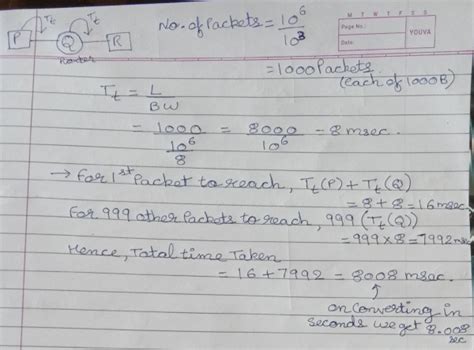 M T W T F S S
Page No.:
Date:
YOUVA
Tt Tt
P Q R
Router
No. of Packets = 10^6 / 10^3
= 1000 Packets
(each of 1000B)
Tt = L / BW
= 1000 / (10^6 / 8) = 8000 / 10^6 = 8 msec.
→ For 1st Packet to reach, Tt(P) + Tt(Q)
= 8 + 8 = 16 msec
For 999 other Packets to reach, 999 (Tt(Q))
= 999 x 8 = 7992 msec
Hence, Total time Taken
= 16 + 7992 = 8008 msec.
↑
on Converting in
seconds we get 8.008
sec